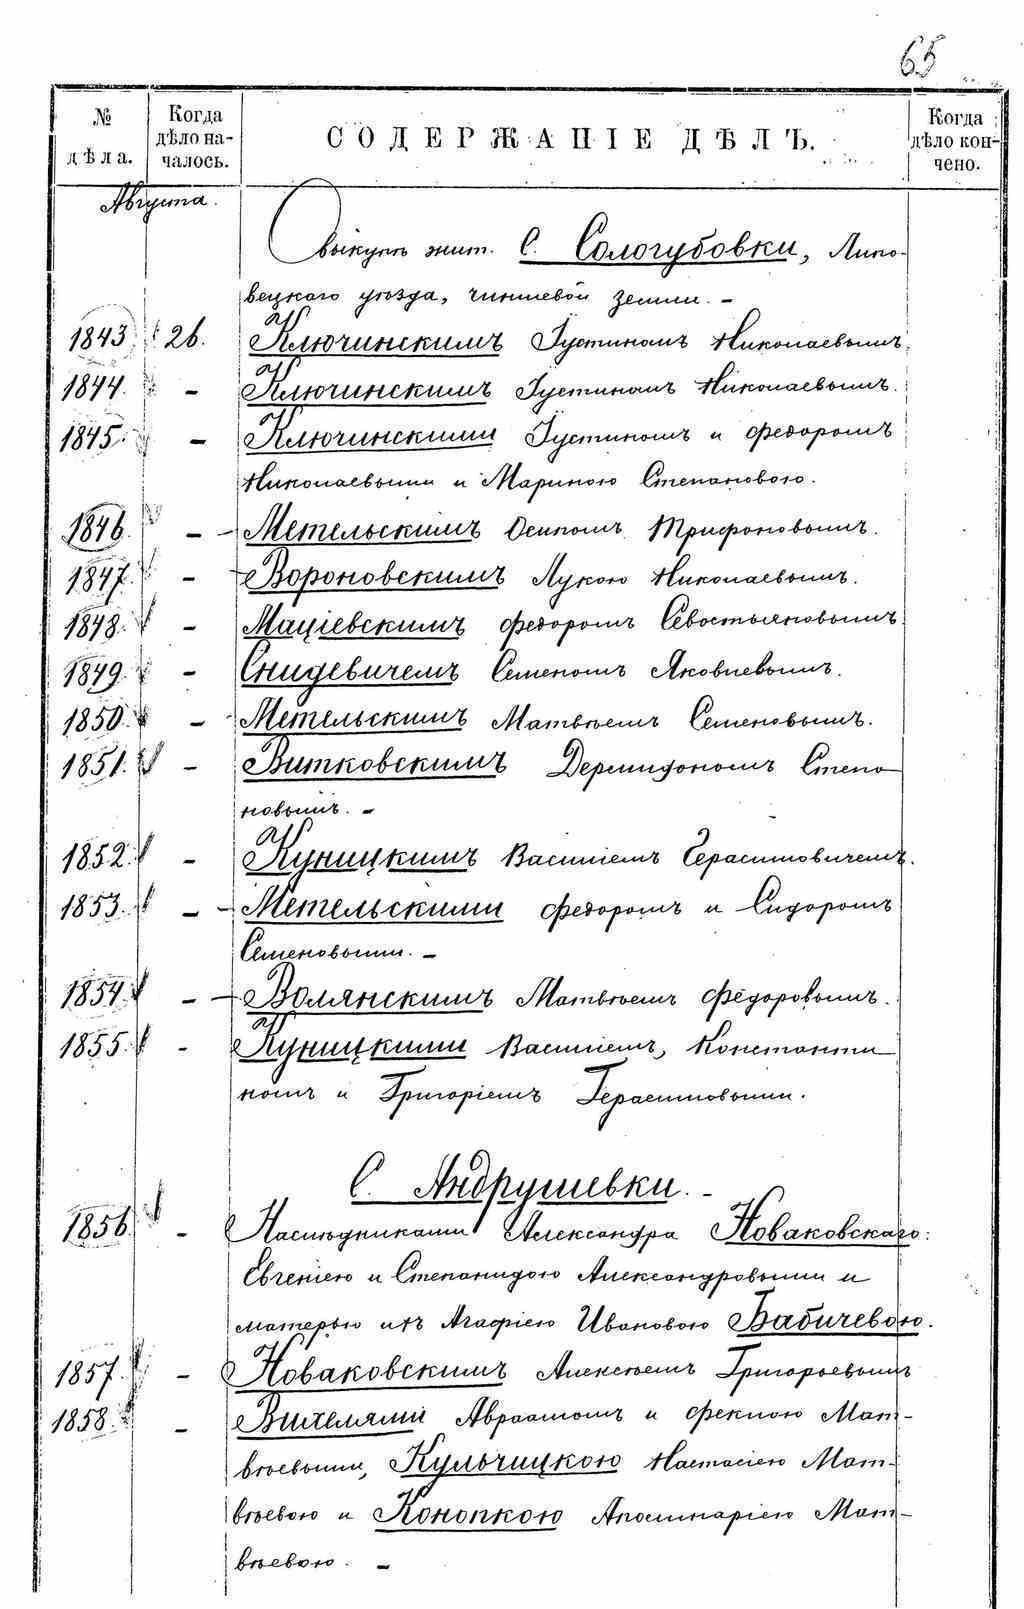 65
№ дѣла. Когда дѣло началось. СОДЕРЖАНІЕ ДѢЛЪ. Когда дѣло кончено.
Августа.
О выкупѣ жит. С. Сологубовки, Липо-
вецкаго уѣзда, чиншевой земли. –
1843. 26. Ключинскимъ Іустиномъ Николаевымъ.
1844. – Ключинскимъ Іустиномъ Николаевымъ.
1845. – Ключинскими Іустиномъ и Федоромъ
Николаевыми и Мариною Степановою.
1846. – Метельскимъ Осипомъ Трифоновымъ.
1847. – Вороновскимъ Лукою Николаевымъ.
1848. – Маціевскимъ Федоромъ Севостьяновымъ
1849. – Снидевичемъ Семеномъ Яковлевымъ.
1850. – Метельскимъ Матвѣемъ Семеновымъ.
1851. – Витковскимъ Дермидономъ Степа
новымъ. –
1852. – Куницкимъ Василіемъ Герасимовичемъ.
1853. – Метельскими Федоромъ и Сидоромъ
Семеновыми. –
1854. – Волянскимъ Матвѣемъ Федоровымъ.
1855. – Куницкими Василіемъ, Константи
номъ и Григоріемъ Герасимовыми.
С. Андрушевки. –
1856. – Наслѣдниками Александра Новаковскаго:
Евгеніею и Степанидою Александровыми и
матерью ихъ Агафіею Ивановою Бабичевою.
1857. – Новаковскимъ Алексѣемъ Григорьевымъ
1858. – Вигелями Авраамомъ и Феклою Мат-
вѣевыми, Кульчицкою Настасіею Мат-
вѣевою и Конопкою Аполинаріею Мат-
вѣевою. –